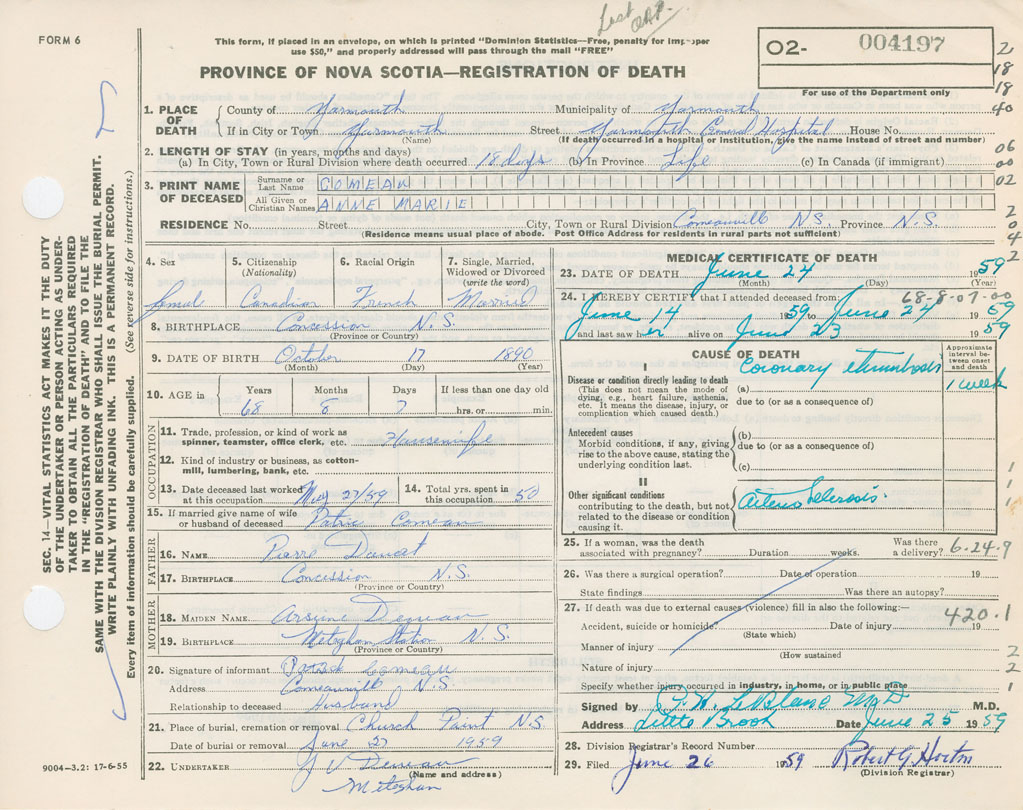 Last
FORM 6
This form, if placed in an envelope, on which is printed "Dominion Statistics—Free, penalty for improper
use $50," and properly addressed will pass through the mail "FREE"
PROVINCE OF NOVA SCOTIA—REGISTRATION OF DEATH
O2- 004197
For use of the Department only
2
18
19
40
06
00
02
2
0
4
2
1. PLACE OF DEATH
County of Yarmouth Municipality of Yarmouth
If in City or Town Yarmouth Street Yarmouth General Hospital House No.
(Name) (If death occurred in a hospital or institution, give the name instead of street and number)
2. LENGTH OF STAY (in years, months and days)
(a) In City, Town or Rural Division where death occurred 18 days (b) In Province Life (c) In Canada (if immigrant)
3. PRINT NAME OF DECEASED
Surname or Last Name COMEAU
All Given or Christian Names ANNE MARIE
RESIDENCE No. Street City, Town or Rural Division Comeauville N.S. Province N.S.
(Residence means usual place of abode. Post Office Address for residents in rural parts not sufficient)
4. Sex 5. Citizenship (Nationality) 6. Racial Origin 7. Single, Married, Widowed or Divorced (write the word)
Femal Canadian French Married
8. BIRTHPLACE Concession N.S.
(Province or Country)
9. DATE OF BIRTH October 17 1890
(Month) (Day) (Year)
10. AGE Years Months Days If less than one day old
68 8 7 hrs. or min.
OCCUPATION
11. Trade, profession, or kind of work as spinner, teamster, office clerk, etc. Housewife
12. Kind of industry or business, as cotton-mill, lumbering, bank, etc.
13. Date deceased last worked at this occupation May 27/59 14. Total yrs. spent in this occupation 50
15. If married give name of wife or husband of deceased Patric Comeau
FATHER
16. NAME Pierre
17. BIRTHPLACE Concession N.S.
(Province or Country)
MOTHER
18. MAIDEN NAME
19. BIRTHPLACE Meteghan Station N.S.
(Province or Country)
20. Signature of informant Comeau
Address Comeauville N.S.
Relationship to deceased Husband
21. Place of burial, cremation or removal Church Point N.S.
Date of burial or removal June 27 1959
22. UNDERTAKER
(Name and address)
Meteghan
9004-3.2: 17-6-55
MEDICAL CERTIFICATE OF DEATH
23. DATE OF DEATH June 24 1959
(Month) (Day) (Year)
24. I HEREBY CERTIFY that I attended deceased from: 68-8-07-00
June 14 1959 to June 24 1959
and last saw her alive on June 23 1959
CAUSE OF DEATH
Approximate interval between onset and death
I
Disease or condition directly leading to death
(This does not mean the mode of dying, e.g., heart failure, asthenia, etc. It means the disease, injury, or complication which caused death.)
(a) Coronary thrombosis 1 week
due to (or as a consequence of)
Antecedent causes
Morbid conditions, if any, giving rise to the above cause, stating the underlying condition last.
(b)
due to (or as a consequence of)
(c)
II
Other significant conditions contributing to the death, but not related to the disease or condition causing it.
Arteriosclerosis
1
1
1
25. If a woman, was the death associated with pregnancy? Duration weeks. Was there a delivery? 6-24-9
26. Was there a surgical operation? Date of operation 19
State findings Was there an autopsy?
27. If death was due to external causes (violence) fill in also the following:—
420.1
Accident, suicide or homicide? Date of injury 19
(State which)
Manner of injury 2
(How sustained
Nature of injury 2
Specify whether injury occurred in industry, in home, or in public place 1
Signed by LeBlanc MD M.D.
Address Little Brook Date June 25 1959
28. Division Registrar's Record Number
29. Filed June 26 1959 Robert G Horton
(Division Registrar)
SEC. 14—VITAL STATISTICS ACT MAKES IT THE DUTY
OF THE UNDERTAKER OR PERSON ACTING AS UNDER-
TAKER TO OBTAIN ALL THE PARTICULARS REQUIRED
IN THE "REGISTRATION OF DEATH" AND TO FILE THE
SAME WITH THE DIVISION REGISTRAR WHO SHALL ISSUE THE BURIAL PERMIT.
WRITE PLAINLY WITH UNFADING INK. THIS IS A PERMANENT RECORD.
Every item of information should be carefully supplied. (See reverse side for instructions.)